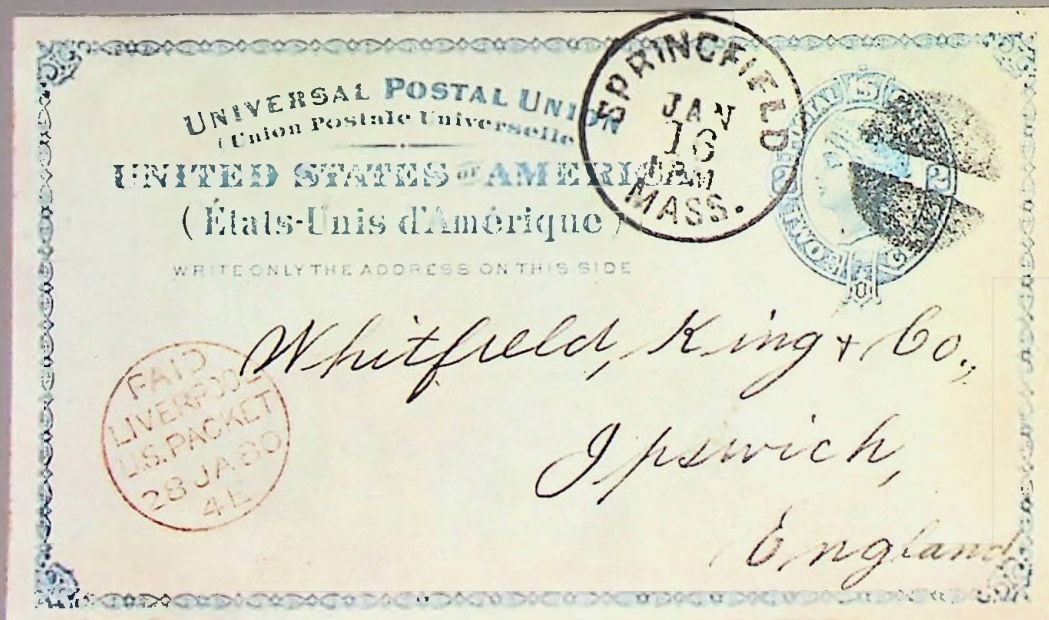 UNIVERSAL POSTAL UNION
(Union Postale Universelle
UNITED STATES OF AMERICA
(États-Unis d'Amérique)
WRITE ONLY THE ADDRESS ON THIS SIDE
SPRINGFIELD
JAN
16
MASS.
TWO
2
2
PAID
LIVERPOOL
U.S. PACKET
28 JA 80
4E
Whitfield, King & Co.,
Ipswich,
England